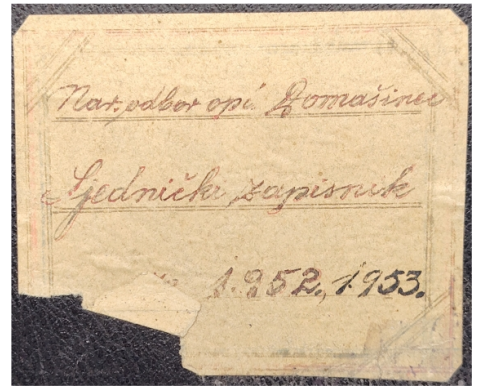 Nar. odbor opć. Domašinec
Sjednički zapisnik
1.952., 1953.